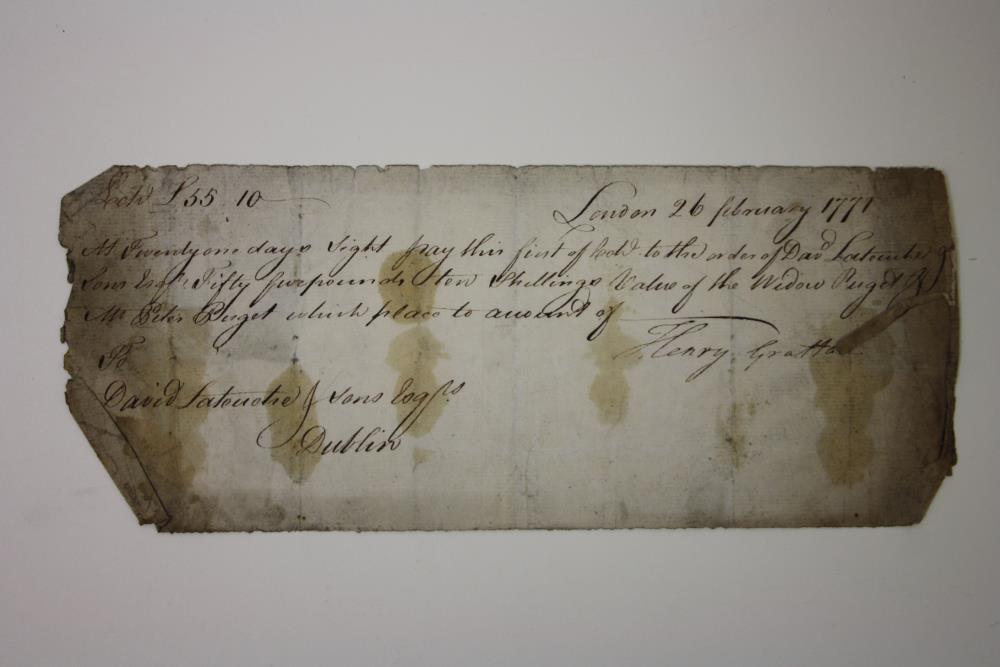 £55 10
London 26 february 1771
At Twenty one days Sight pay this first of to the order of Davd Latouche &
Sons Esqrs Fifty five pounds ten Shillings Value of the Widow Puget &
Mr Peter Puget which place to account of
Henry Grattan
To
David Latouche & sons Esqrs
Dublin